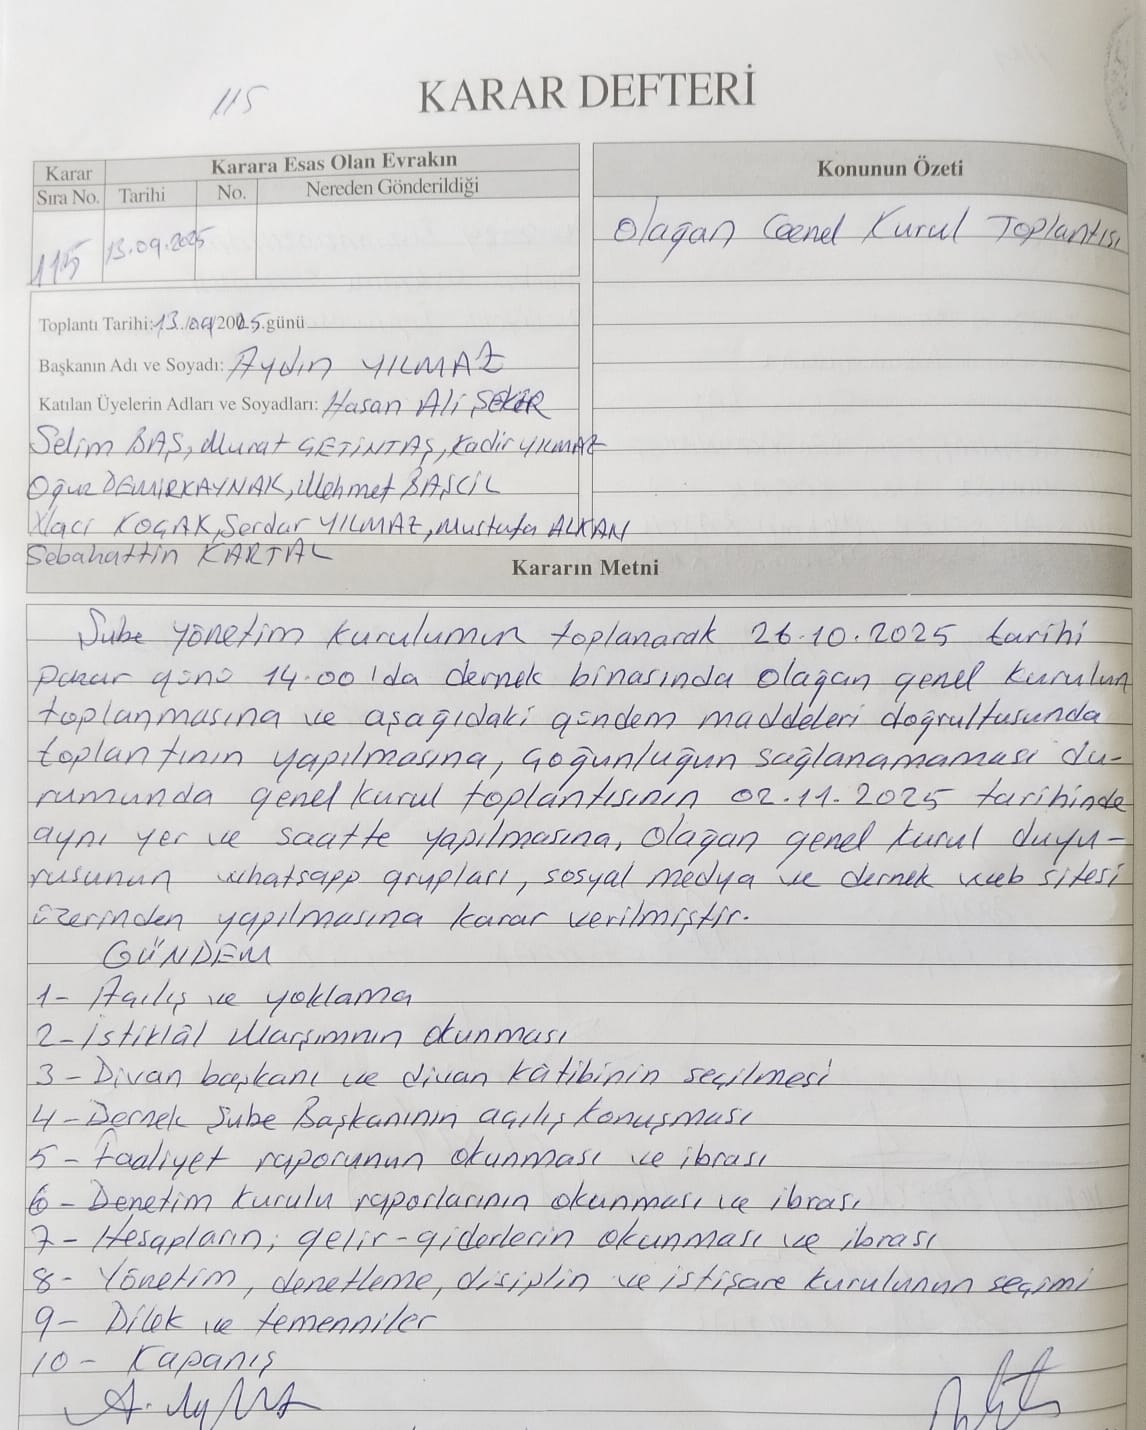 115
KARAR DEFTERİ
Karar
Sıra No.
Karara Esas Olan Evrakın
Tarihi
No.
Nereden Gönderildiği
115
13.09.2025
Konunun Özeti
Olağan Genel Kurul Toplantısı
Toplantı Tarihi: 13./09/2025.günü
Başkanın Adı ve Soyadı: Aydın YILMAZ
Katılan Üyelerin Adları ve Soyadları: Hasan Ali ŞEKER
Selim BAŞ, Murat ÇETİNTAŞ, Kadir YILMAZ
Oğuz DEMİRKAYNAK, Mehmet BAŞCIL
Hacı KOÇAK, Serdar YILMAZ, Mustafa ALKAN
Sebahattin KARTAL
Kararın Metni
Şube Yönetim kurulumun toplanarak 26.10.2025 tarihi
pazar günü 14.00'da dernek binasında Olağan genel kurulun
toplanmasına ve aşağıdaki gündem maddeleri doğrultusunda
toplantının yapılmasına, çoğunluğun sağlanamaması du-
rumunda genel kurul toplantısının 02.11.2025 tarihinde
aynı yer ve saatte yapılmasına, Olağan genel kurul duyu-
rusunun whatsapp grupları, sosyal medya ve dernek web sitesi
üzerinden yapılmasına karar verilmiştir.
GÜNDEM
1- Açılış ve yoklama
2- İstiklâl Marşımnın okunması
3- Divan başkanı ve divan kâtibinin seçilmesi
4- Dernek Şube Başkanının açılış konuşması
5- Faaliyet raporunun okunması ve ibrası
6- Denetim kurulu raporlarının okunması ve ibrası
7- Hesapların, gelir-giderlerin okunması ve ibrası
8- Yönetim, denetleme, disiplin ve istişare kurulunun seçimi
9- Dilek ve temenniler
10- Kapanış